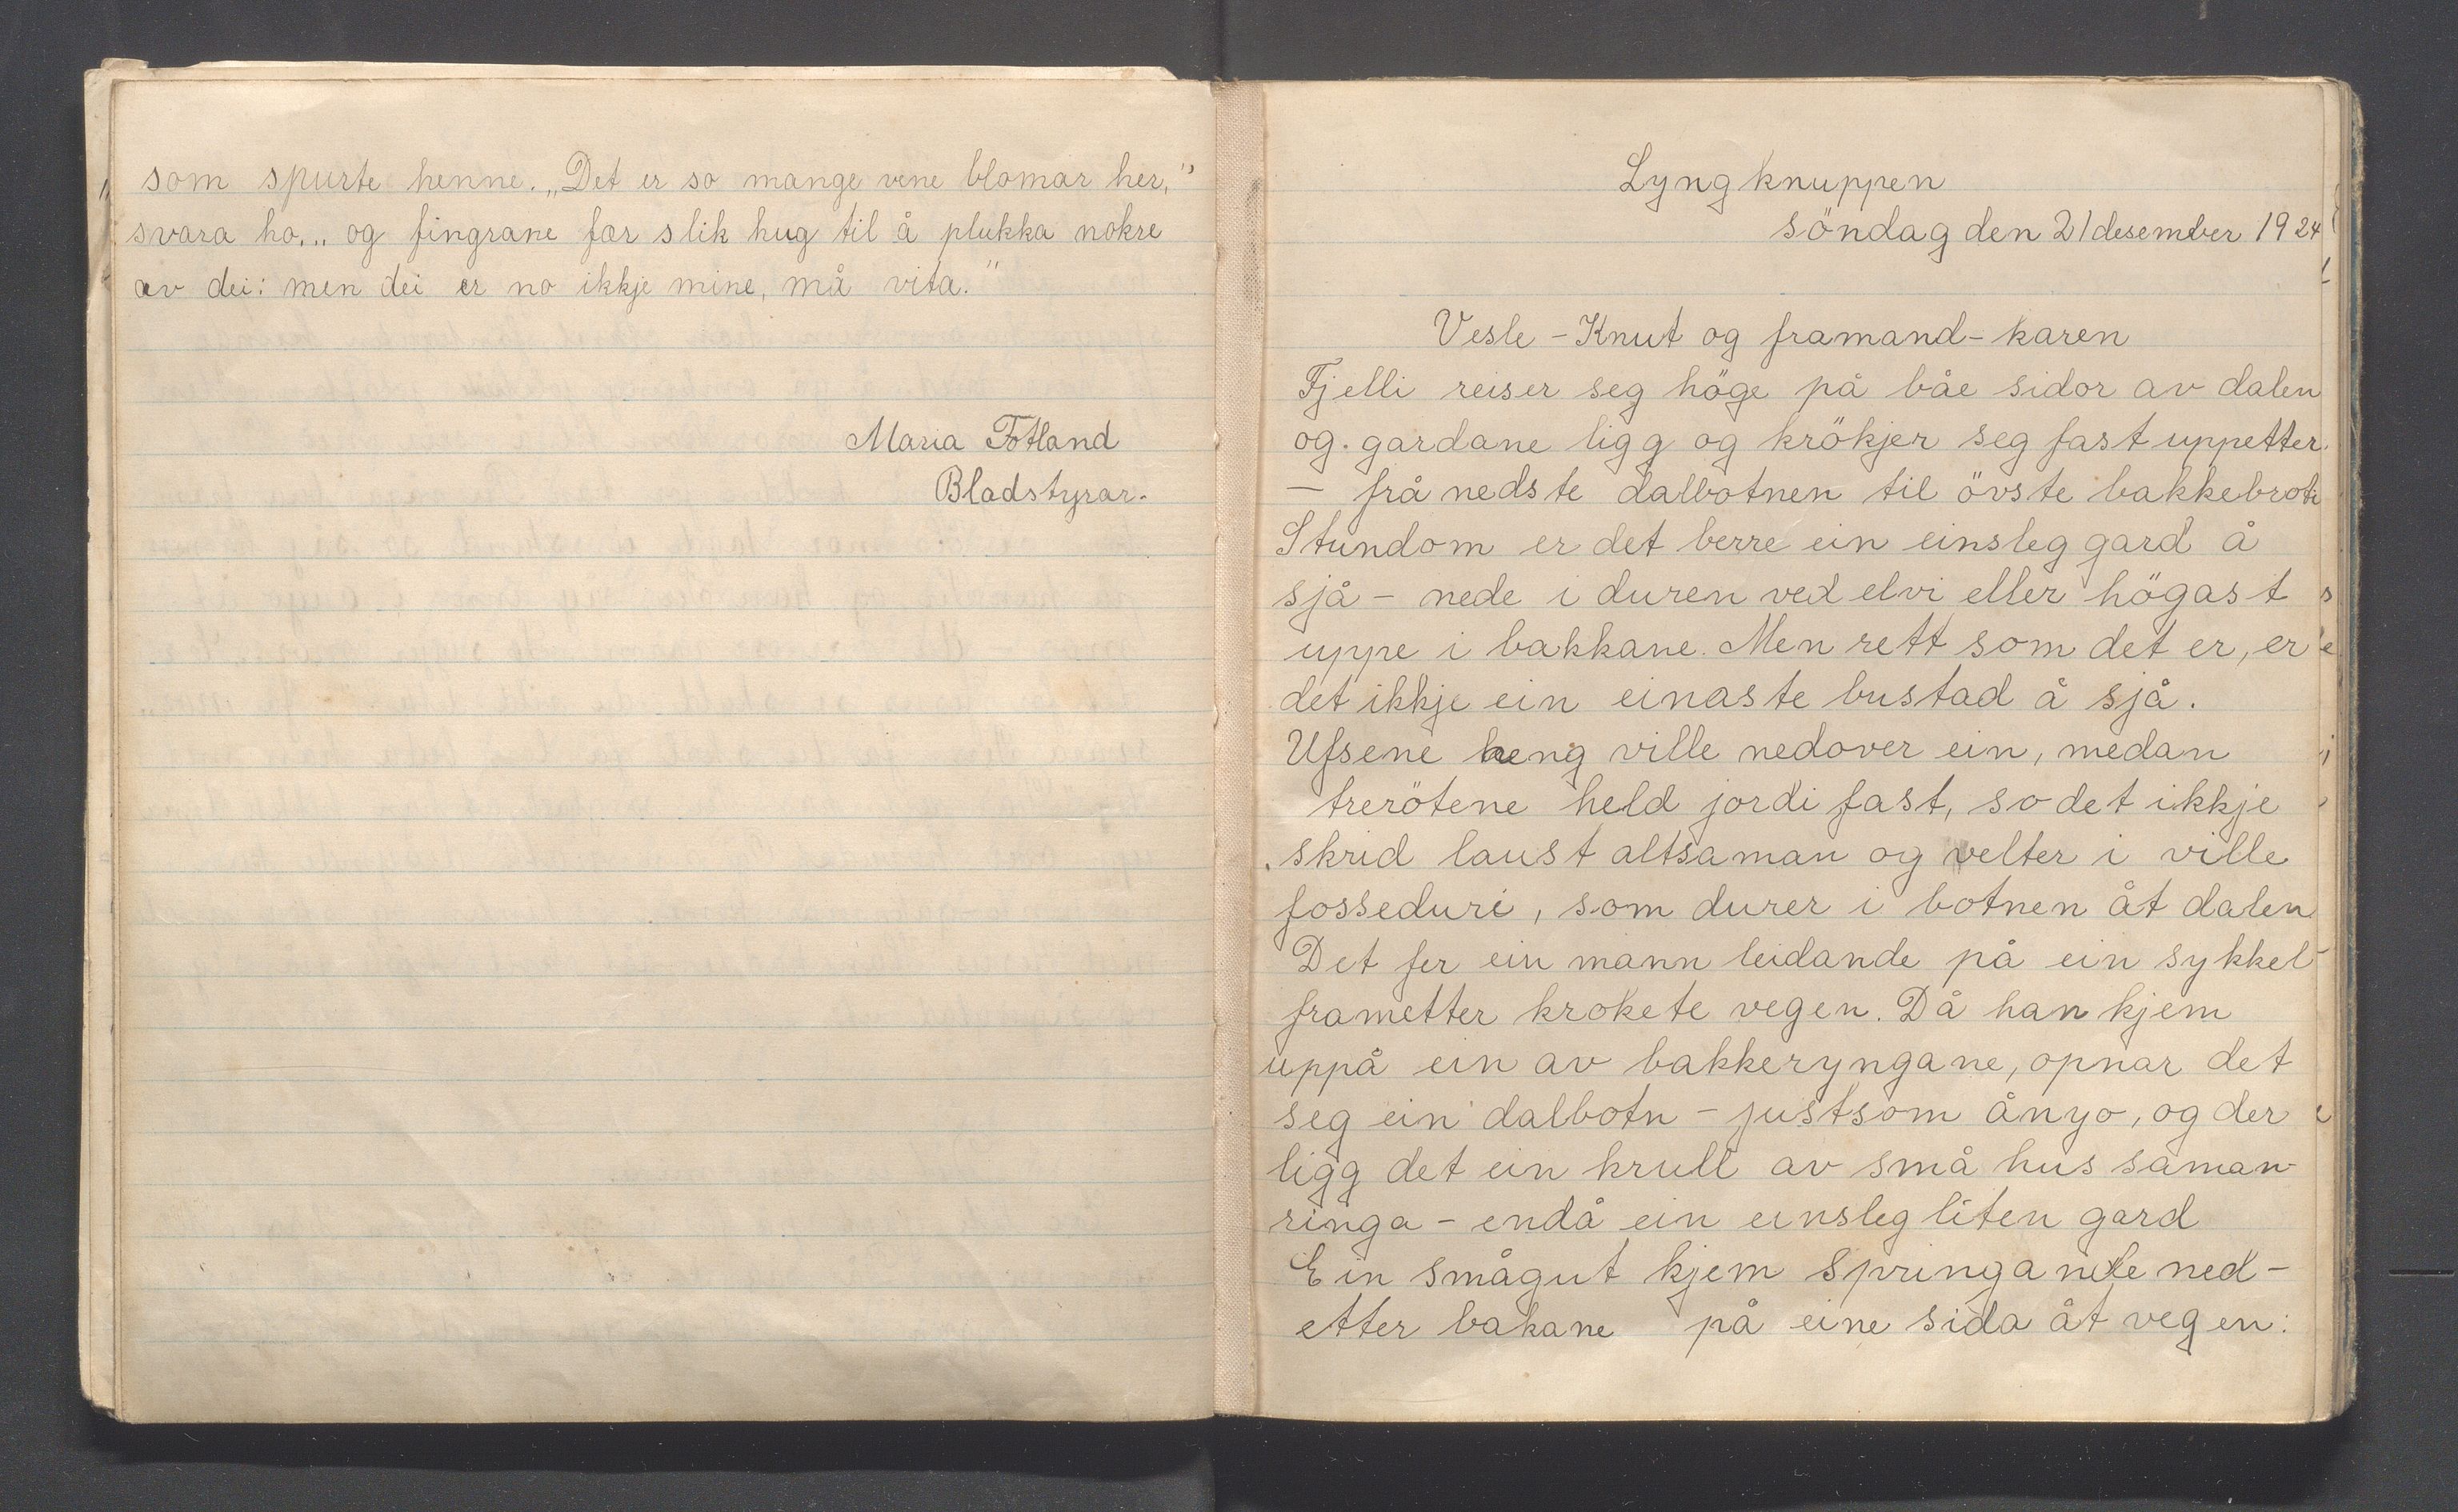 som spurte henne. „Det er so mange vene blomar her,"
svara ho. „ og fingrane fær slik hug til å plukka nokre
av dei: men dei er no ikkje mine, må vita."
Maria Fotland
Bladstyrar.
Lyngknuppen
söndag den 21 desember 1924
Vesle-Knut og framand-karen
Fjelli reiser seg höge på båe sidor av dalen
og gardane ligg og krökjer seg fast uppetter.
- frå nedste dalbotnen til övste bakkebrote
Stundom er det berre ein einsleg gard å
sjå - nede i duren ved elvi eller högast
uppe i bakkane. Men rett som det er, er
det ikkje ein einaste bustad å sjå.
Ufsene heng ville nedover ein, medan
trerötene held jordi fast, so det ikkje
skrid laust altsaman og velter i ville
fosseduri, som durer i botnen åt dalen
Det fer ein mann leidande på ein sykkel
frametter krokete vegen. Då han kjem
uppå ein av bakkeryngane, opnar det
seg ein dalbotn - justsom ånyo, og der
ligg det ein krull av små hus saman
ringa - endå ein einsleg liten gard
Ein smågut kjem springande ned-
etter bakane på eine sida åt vegen: